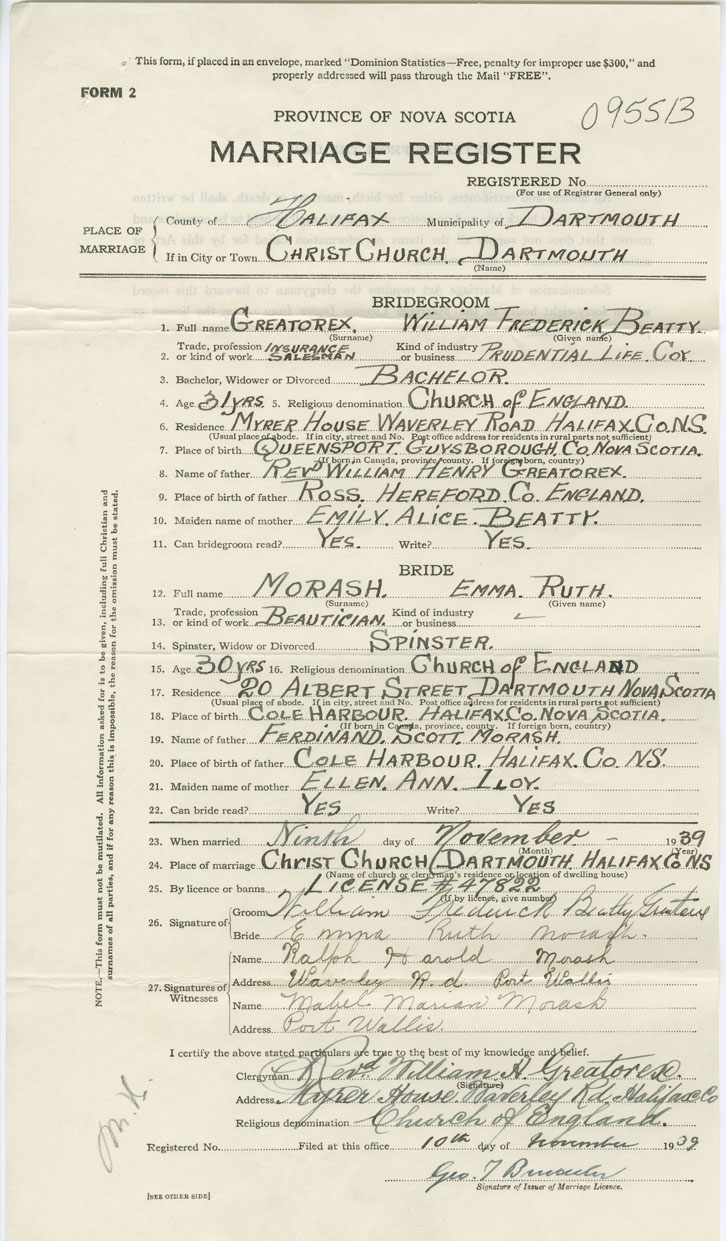 This form, if placed in an envelope, marked "Dominion Statistics—Free, penalty for improper use $300," and
properly addressed will pass through the Mail "FREE".
FORM 2
095513
PROVINCE OF NOVA SCOTIA
MARRIAGE REGISTER
REGISTERED No.
(For use of Registrar General only)
PLACE OF MARRIAGE
County of HALIFAX Municipality of DARTMOUTH
If in City or Town CHRIST CHURCH, DARTMOUTH
(Name)
BRIDEGROOM
1. Full name GREATOREX, WILLIAM FREDERICK BEATTY.
(Surname) (Given name)
2. Trade, profession or kind of work INSURANCE SALESMAN Kind of industry or business PRUDENTIAL LIFE. COY
3. Bachelor, Widower or Divorced BACHELOR.
4. Age 31 YRS. 5. Religious denomination CHURCH OF ENGLAND.
6. Residence MYRER HOUSE WAVERLEY ROAD HALIFAX.CO.N.S.
(Usual place of abode. If in city, street and No. Post office address for residents in rural parts not sufficient)
7. Place of birth QUEENSPORT. GUYSBOROUGH. CO. NOVA SCOTIA.
(If born in Canada, province, county. If foreign born, country)
8. Name of father REVD WILLIAM HENRY GREATOREX.
9. Place of birth of father ROSS. HEREFORD. CO. ENGLAND.
10. Maiden name of mother EMILY. ALICE. BEATTY.
11. Can bridegroom read? YES. Write? YES.
BRIDE
12. Full name MORASH. EMMA. RUTH.
(Surname) (Given name)
13. Trade, profession or kind of work BEAUTICIAN. Kind of industry or business
14. Spinster, Widow or Divorced SPINSTER.
15. Age 30 YRS 16. Religious denomination CHURCH OF ENGLAND
17. Residence 20 ALBERT STREET, DARTMOUTH NOVA SCOTIA
(Usual place of abode. If in city, street and No. Post office address for residents in rural parts not sufficient)
18. Place of birth COLE HARBOUR. HALIFAX. CO. NOVA SCOTIA.
(If born in Canada, province, county. If foreign born, country)
19. Name of father FERDINAND. SCOTT. MORASH.
20. Place of birth of father COLE HARBOUR. HALIFAX. CO. NS.
21. Maiden name of mother ELLEN. ANN. ILOY.
22. Can bride read? YES Write? YES
23. When married Ninth day of November – 1939
(Month) (Year)
24. Place of marriage CHRIST CHURCH, DARTMOUTH. HALIFAX CO NS
(Name of church or clergyman's residence or location of dwelling house)
25. By licence or banns LICENSE # 47822
(If by license, give number)
26. Signature of
Groom William Frederick Beatty Greatorex
Bride Emma Ruth Morash.
27. Signatures of Witnesses
Name Ralph Harold Morash
Address Waverley Rd. Port Wallis
Name Mabel Marian Morash
Address Port Wallis.
I certify the above stated particulars are true to the best of my knowledge and belief.
Clergyman Revd William H. Greatorex.
(Signature)
Address Myrer House, Waverley Rd. Halifax Co
Religious denomination Church of England.
Registered No. Filed at this office 10th day of November 1939
Signature of Issuer of Marriage Licence.
[SEE OTHER SIDE]
NOTE.—This form must not be mutilated. All information asked for is to be given, including full Christian and
surnames of all parties, and if for any reason this is impossible, the reason for the omission must be stated.